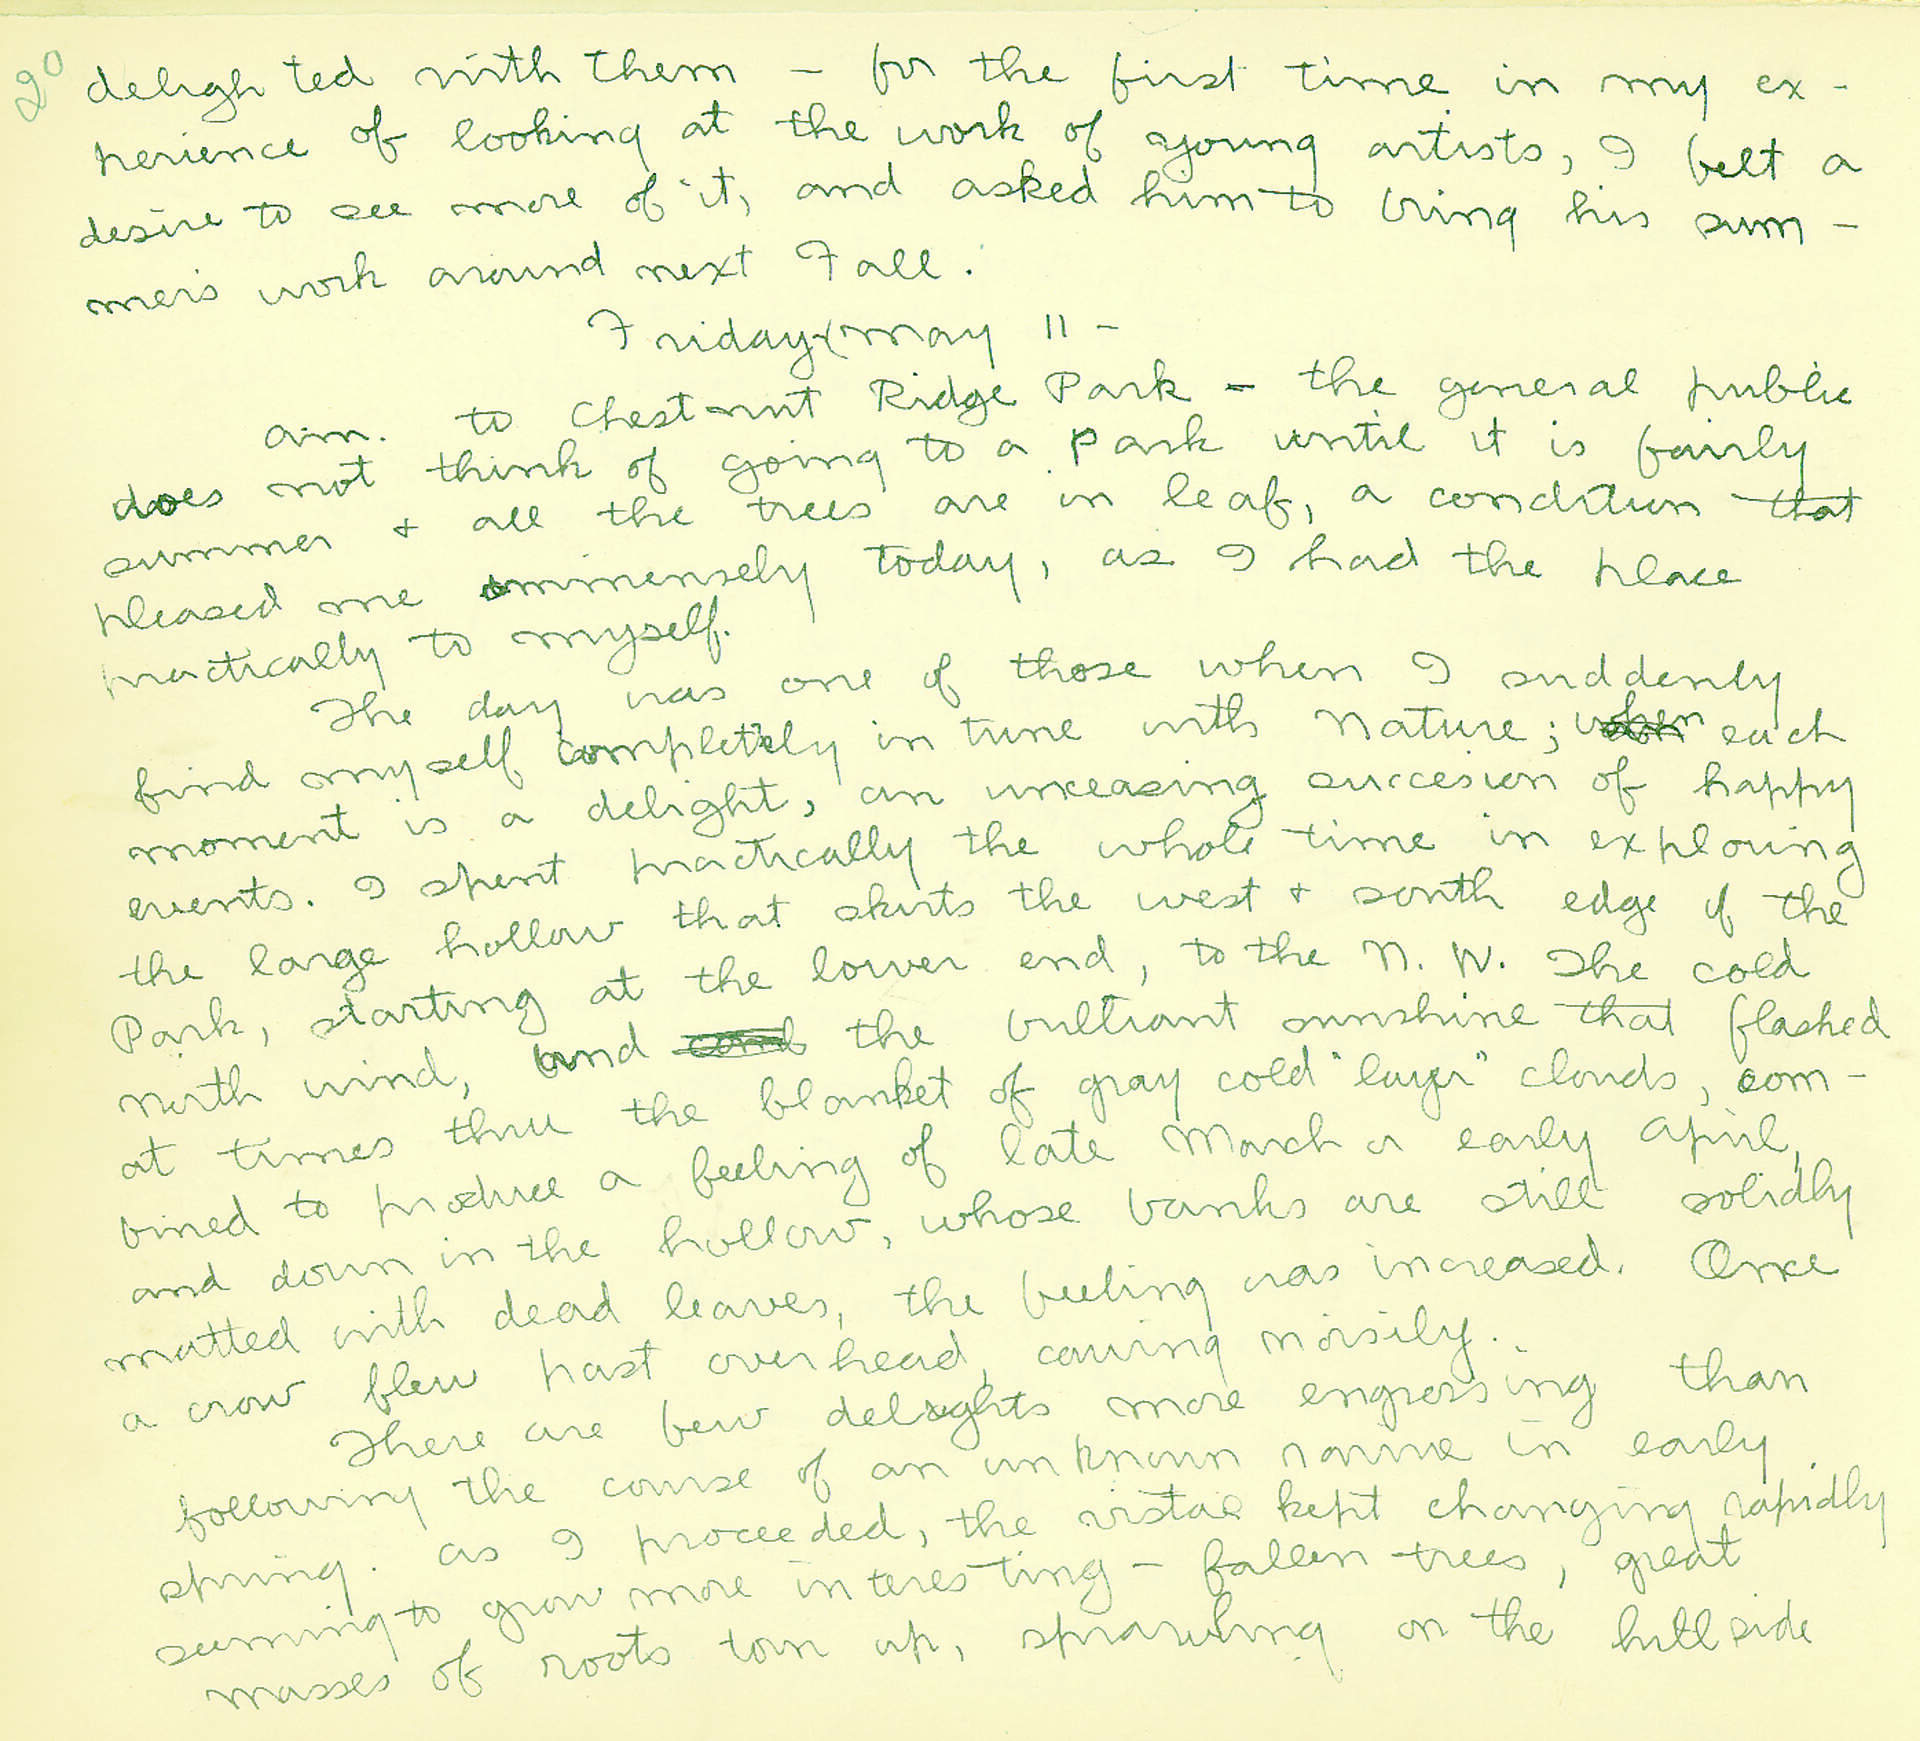 20
delighted with them – for the first time in my ex-
perience of looking at the work of young artists, I felt a
desire to see more of it, and asked him to bring his sum-
mer's work around next Fall.
Friday May 11 –
a.m. to Chestnut Ridge Park – the general public
does not think of going to a park until it is fairly
summer + all the trees are in leaf, a condition that
pleased me immensely today, as I had the place
practically to myself.
The day was one of those when I suddenly
find myself completely in tune with Nature; when each
moment is a delight, an unceasing succesion of happy
events. I spent practically the whole time in exploring
the large hollow that skirts the west + south edge of the
Park, starting at the lower end, to the N.W. The cold
north wind, and the brilliant sunshine that flashed
at times thru the blanket of gray cold "layer" clouds, com-
bined to produce a feeling of late March or early April,
and down in the hollow, whose banks are still solidly
matted with dead leaves, the feeling was increased. Once
a crow flew past overhead, cawing noisily.
There are few delights more engrossing than
following the course of an unknown ravine in early
spring. As I proceeded, the vistas kept changing rapidly
seeming to grow more interesting – fallen trees, great
masses of roots torn up, sprawling on the hillside